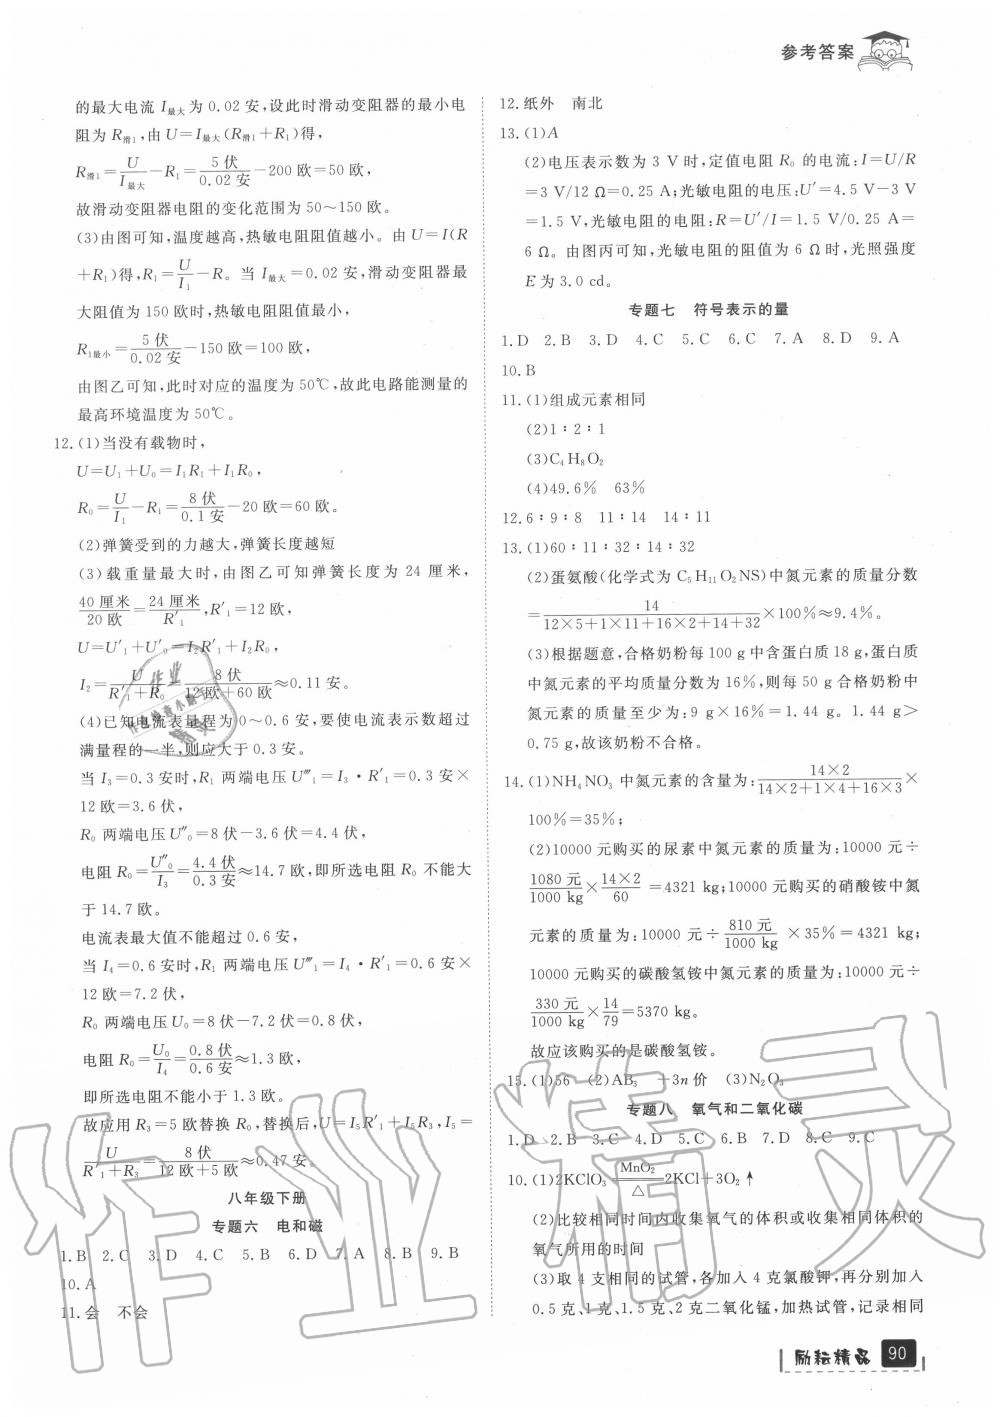 参考答案
的最大电流 I最大 为 0.02 安,设此时滑动变阻器的最小电
阻为 R滑1,由 U=I最大(R滑1+R₁)得,
R滑1=U/I最大-R₁=5 伏/0.02 安-200 欧=50 欧,
故滑动变阻器电阻的变化范围为 50~150 欧。
(3)由图可知,温度越高,热敏电阻阻值越小。由 U=I(R
+R₁)得,R₁=U/I₁-R。当 I最大=0.02 安,滑动变阻器最
大阻值为 150 欧时,热敏电阻阻值最小,
R1最小=5 伏/0.02 安-150 欧=100 欧,
由图乙可知,此时对应的温度为 50℃,故此电路能测量的
最高环境温度为 50℃。
12.(1)当没有载物时,
U=U₁+U₀=I₁R₁+I₁R₀,
R₀=U/I₁-R₁=8 伏/0.1 安-20 欧=60 欧。
(2)弹簧受到的力越大,弹簧长度越短
(3)载重量最大时,由图乙可知弹簧长度为 24 厘米,
40 厘米/20 欧=24 厘米/R′₁,R′₁=12 欧,
U=U′₁+U′₀=I₂R′₁+I₂R₀,
I₂=U/(R′₁+R₀)=8 伏/(12 欧+60 欧)≈0.11 安。
(4)已知电流表量程为 0~0.6 安,要使电流表示数超过
满量程的一半,则应大于 0.3 安。
当 I₃=0.3 安时,R₁ 两端电压 U″₁=I₃·R′₁=0.3 安×
12 欧=3.6 伏,
R₀ 两端电压 U″₀=8 伏-3.6 伏=4.4 伏,
电阻 R₀=U″₀/I₃=4.4 伏/0.3 安≈14.7 欧,即所选电阻 R₀ 不能大
于 14.7 欧。
电流表最大值不能超过 0.6 安,
当 I₄=0.6 安时,R₁ 两端电压 U‴₁=I₄·R′₁=0.6 安×
12 欧=7.2 伏,
R₀ 两端电压 U₀=8 伏-7.2 伏=0.8 伏,
电阻 R₀=U₀/I₄=0.8 伏/0.6 安≈1.3 欧,
即所选电阻不能小于 1.3 欧。
故应用 R₃=5 欧替换 R₀,替换后,U=I₅R′₁+I₅R₃,I₅=
U/(R′₁+R₃)=8 伏/(12 欧+5 欧)≈0.47 安。
八年级下册
专题六 电和磁
1.B 2.C 3.D 4.C 5.B 6.D 7.A 8.B 9.B
10.A
11.会 不会
12.纸外 南北
13.(1)A
(2)电压表示数为 3 V时,定值电阻 R₀ 的电流:I=U/R
=3 V/12 Ω=0.25 A;光敏电阻的电压:U′=4.5 V-3 V
=1.5 V,光敏电阻的电阻:R=U′/I=1.5 V/0.25 A=
6 Ω。由图丙可知,光敏电阻的阻值为 6 Ω时,光照强度
E 为 3.0 cd。
专题七 符号表示的量
1.D 2.B 3.D 4.C 5.C 6.C 7.A 8.D 9.A
10.B
11.(1)组成元素相同
(2)1∶2∶1
(3)C₄H₈O₂
(4)49.6% 63%
12.6∶9∶8 11∶14 14∶11
13.(1)60∶11∶32∶14∶32
(2)蛋氨酸(化学式为 C₅H₁₁O₂NS)中氮元素的质量分数
=14/(12×5+1×11+16×2+14+32)×100%≈9.4%。
(3)根据题意,合格奶粉每 100 g 中含蛋白质 18 g,蛋白质
中氮元素的平均质量分数为 16%,则每 50 g 合格奶粉中
氮元素的质量至少为:9 g×16%=1.44 g。1.44 g>
0.75 g,故该奶粉不合格。
14.(1)NH₄NO₃ 中氮元素的含量为:14×2/(14×2+1×4+16×3)×
100%=35%;
(2)10000 元购买的尿素中氮元素的质量为:10000 元÷
1080 元/1000 kg×14×2/60=4321 kg;10000 元购买的硝酸铵中氮
元素的质量为:10000 元÷810 元/1000 kg×35%=4321 kg;
10000 元购买的碳酸氢铵中氮元素的质量为:10000 元÷
330 元/1000 kg×14/79=5370 kg。
故应该购买的是碳酸氢铵。
15.(1)56 (2)AB₃ +3n 价 (3)N₂O₃
专题八 氧气和二氧化碳
1.D 2.B 3.C 4.D 5.C 6.B 7.D 8.C 9.C
10.(1)2KClO₃ MnO₂/△ 2KCl+3O₂↑
(2)比较相同时间内收集氧气的体积或收集相同体积的
氧气所用的时间
(3)取 4 支相同的试管,各加入 4 克氯酸钾,再分别加入
0.5 克、1 克、1.5 克、2 克二氧化锰,加热试管,记录相同
励耘精品 90
作业精灵
作业
精灵